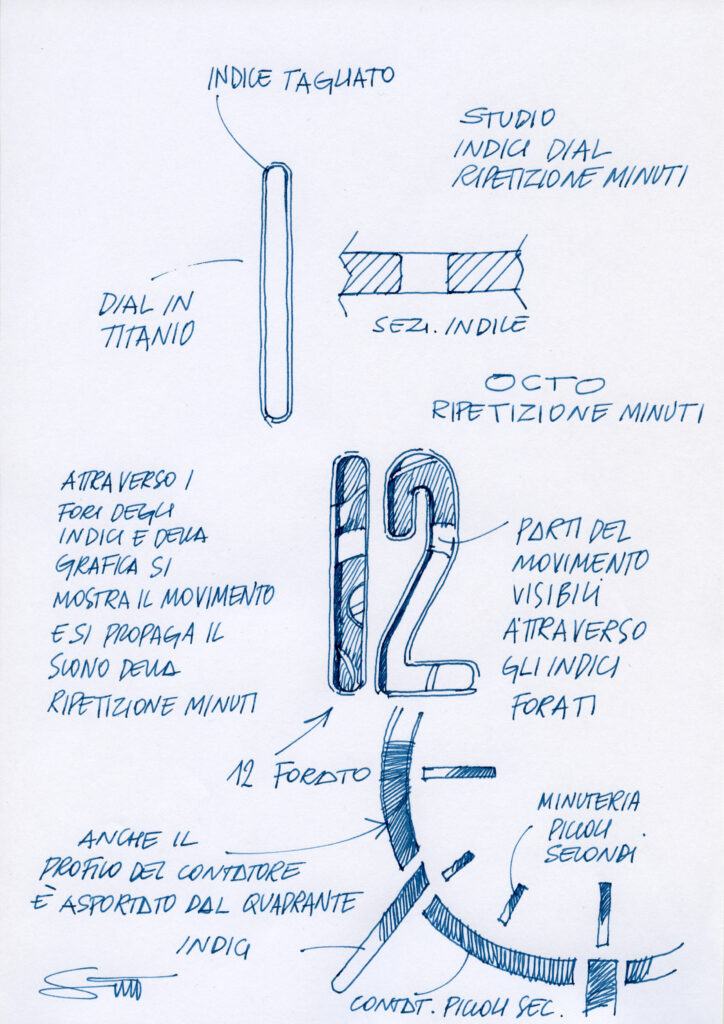 INDICE TAGLIATO
STUDIO
INDICI DIAL
RIPETIZIONE MINUTI
DIAL IN
TITANIO
SEZI. INDICE
OCTO
RIPETIZIONE MINUTI
ATTRAVERSO I
FORI DEGLI
INDICI E DELLA
GRAFICA SI
MOSTRA IL MOVIMENTO
E SI PROPAGA IL
SUONO DELLA
RIPETIZIONE MINUTI
12
PARTI DEL
MOVIMENTO
VISIBILI
ATTRAVERSO
GLI INDICI
FORATI
12 FORATO
MINUTERIA
PICCOLI
SECONDI.
ANCHE IL
PROFILO DEL CONTATORE
È ASPORTATO DAL QUADRANTE
INDICI
CONTAT. PICCOLI SEC.